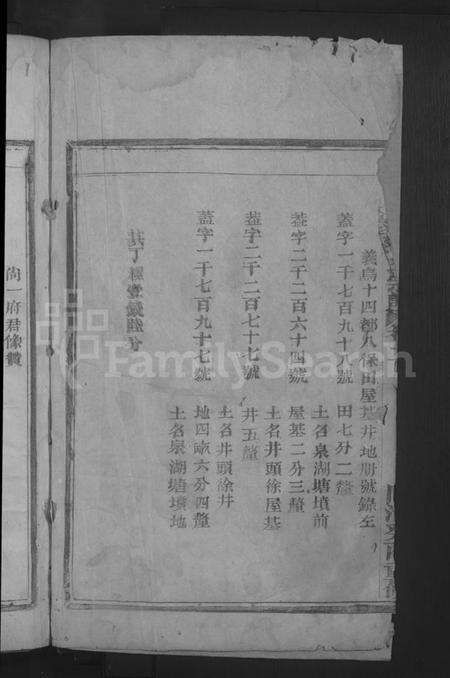 義烏十四都八保田屋基井地册號錄左
蓋字一千七百九十八號 田七分二釐
土名泉湖塘墳前
葢字二千二百六十四號 屋基二分三釐
土名井頭徐屋基
葢字二千二百七十七號 井五釐
土名井頭徐井
蓋字一千七百九十七號 地四畝六分四釐
土名泉湖塘墳地
共丁糧壹錢陸分
尙一府君像贊
FamilySearch